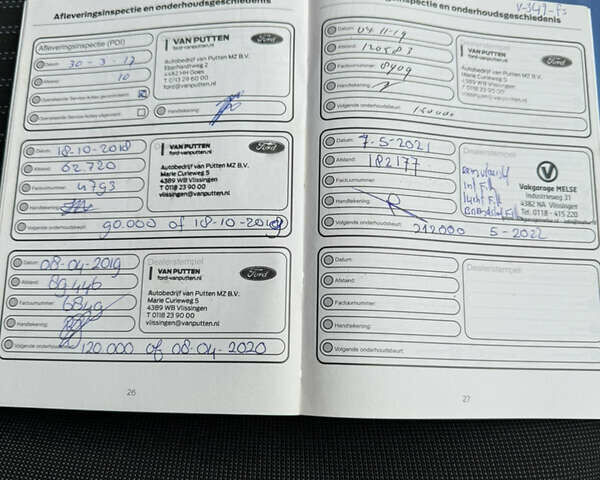 Afleveringsinspectie en onderhoudsgeschiedenis
Afleveringsinspectie (PDI)
Datum: 30-3-17
Afstand: 10
Openstaande Service Acties gecontroleerd:
Openstaande Service Acties uitgevoerd:
VAN PUTTEN
ford-vanputten.nl
Ford
Autobedrijf van Putten MZ B.V.
4462 HH Goes
ford@vanputten.nl
Handtekening:
Datum: 18-10-2018
Afstand: 62.720
Factuurnummer: 4793
Handtekening:
Volgende onderhoudsbeurt: 90.000 of 18-10-2019
VAN PUTTEN
ford-vanputten.nl
Ford
Autobedrijf van Putten MZ B.V.
Marie Curieweg 5
4389 WB Vlissingen
T 0118 23 90 00
vlissingen@vanputten.nl
Datum: 08-04-2019
Afstand: 89.446
Factuurnummer: 6849
Handtekening:
Volgende onderhoudsbeurt: 120.000 of 08-04-2020
Dealerstempel
VAN PUTTEN
ford-vanputten.nl
Ford
Autobedrijf van Putten MZ B.V.
Marie Curieweg 5
4389 WB Vlissingen
T 0118 23 90 00
vlissingen@vanputten.nl
26
inspectie en onderhoudsgeschiedenis
V-347-FS
Datum: 04-11-19
Afstand: 120583
Factuurnummer: 8409
Handtekening:
Volgende onderhoudsbeurt: 150000
VAN PUTTEN
Ford
Datum: 7-5-2021
Afstand: 182177
Factuurnummer:
Handtekening:
Volgende onderhoudsbeurt: 212000 5-2022
Dealerstempel
Vakgarage MELSE
Industrieweg 31
4382 NA Vlissingen
Tel. 0118 - 415 220
Datum:
Afstand:
Factuurnummer:
Handtekening:
Volgende onderhoudsbeurt:
Dealerstempel
27